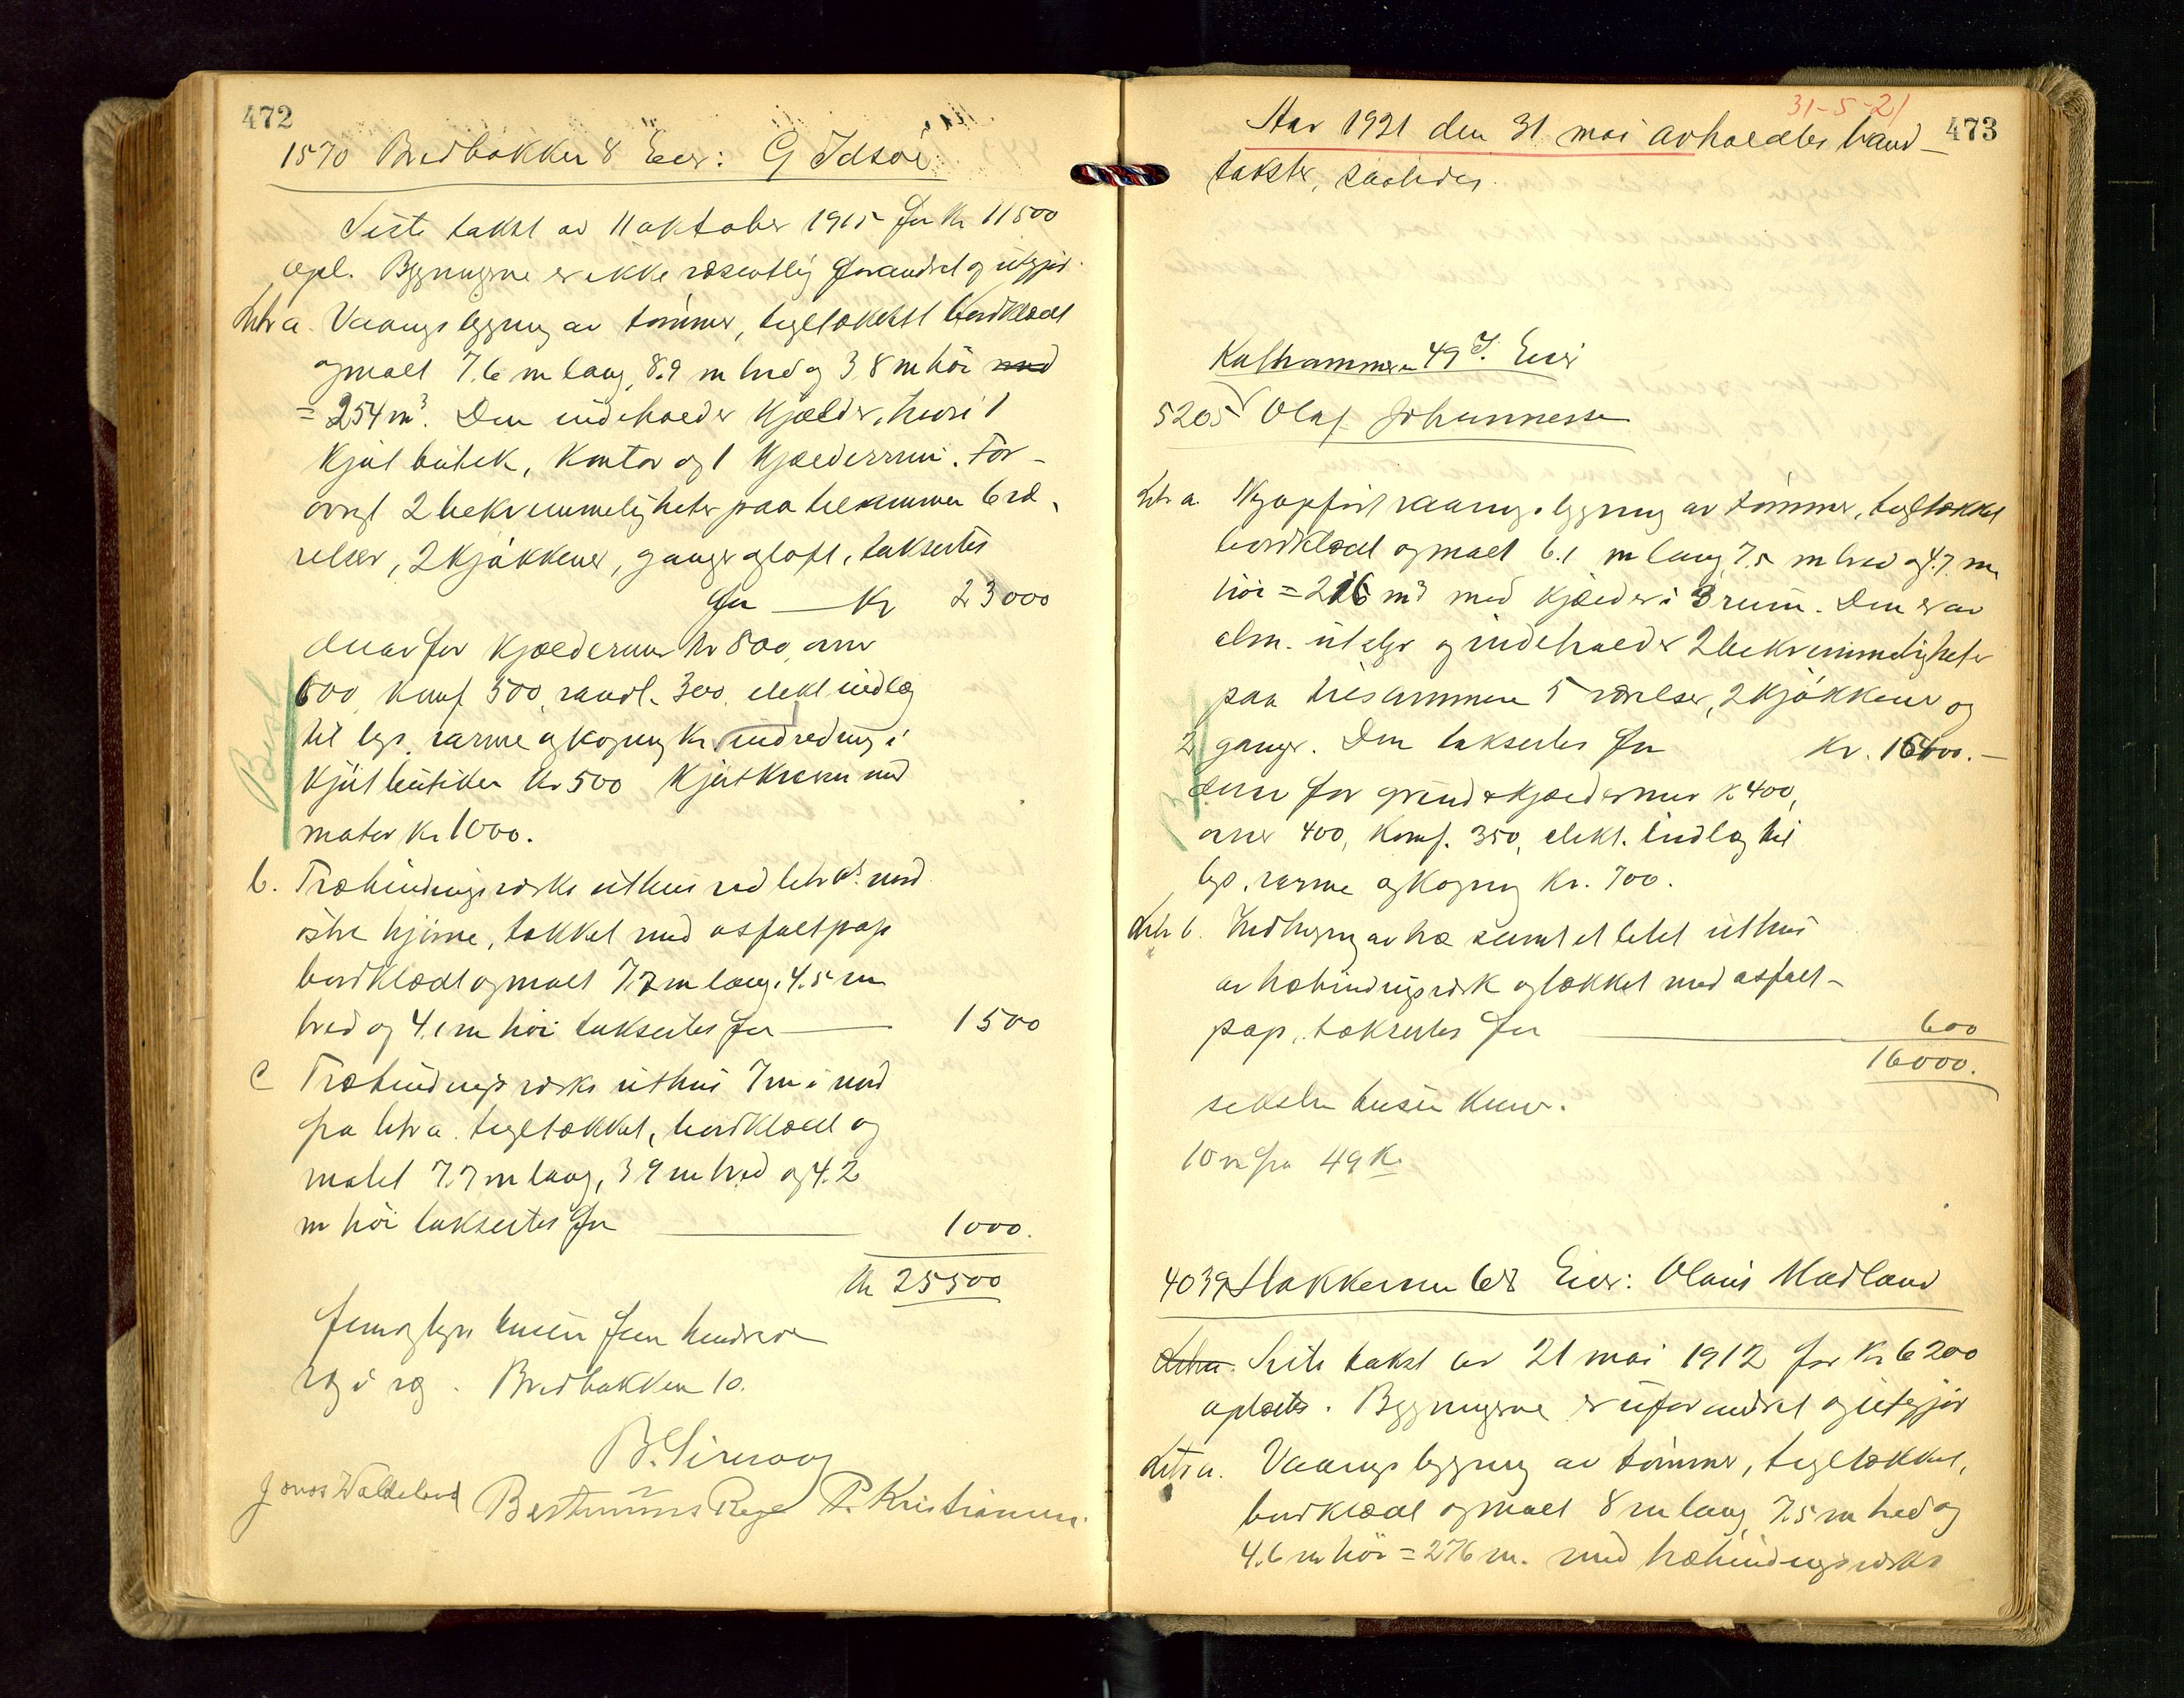 472
1570 Bredbakken 8 Eier: G Idsøe
Siste takst av 11 oktober 1915 for Kr 11500
opl. Bygningerne er ikke væsentlig forandret og utgjør
Litr a. Vaaningsbygning av tømmer, tegltækket bordklædt
og malt 7.6 m lang, 8.9 m bred og 3.8 m høi med
= 254 m³. Den indeholder kjælder, hvori 1
kjøtbutik, kontor og 1 kjælderrum. For-
øvrigt 2 bekvemmeligheter paa tilsammen 6 væ-
relser, 2 kjøkkener, ganger og loft, taksertes
for — Kr 23000
derav for kjældermur kr 800, ovner
600, komf 500, vandl. 300, elekt indlæg
til lys, varme og kogning Kr indredning i
kjøtbutikken Kr 500 Kjøtkværn med
motor Kr 1000.
Besl
b. Træbindingsverks uthus ved litr a's nord
østre hjørne, tækket med asfaltpap
bordklædt og malt 7.7 m lang, 4.5 m
bred og 4.1 m høi taksertes for — 1500
c Træbindingsverks uthus 7 m i nord
fra litr a. tegltækket, bordklædt og
malet 7.7 m lang, 3.9 m bred og 4.2
m høi taksertes for — 1000.
Kr 25500
femogtyve tusen fem hundrede
væg i væg. Bredbakken 10.
B. Sirevaag
Jonas Waldeland Bertinius Rege P. Kristiansen.
31-5-21
473
Aar 1921 den 31 mai avholdtes brand-
takster, saaledes.
Kalhammeren 49 J. Eier
5205 Olaf Johannessen
Litr a. Nyopført vaaningsbygning av tømmer, tegltækket
bordklædt og malt 6.1 m lang 7.5 m bred og 4.7 m
høi = 216 m³ med kjælder i 3 rum. Den er av
alm. utstyr og indeholder 2 bekvemmeligheter
paa tilsammen 5 værelser, 2 kjøkkener og
2 ganger. Den taksertes for Kr. 15400.—
derav for grund & kjældermur k 400,
ovner 400, komf. 350, elekt. indlæg til
lys, varme og kogning Kr. 700.
Litr b. Indhegning av træ samt et litet uthus
av træbindingsverk og tækket med asfalt-
pap, taksertes for — 600
16000.
seksten tusen kroner.
10 m fra 49 K
4039 Stokkeveien 68 Eier: Olaus Madland
Litra. Siste takst av 21 mai 1912 for Kr 6200
oplæstes. Bygningerne er uforandret og utgjør
Litr a. Vaaningsbygning av tømmer, tegltækket,
bordklædt og malt 8 m lang 7.5 m bred og
4.6 m høi = 276 m. med træbindingsverks